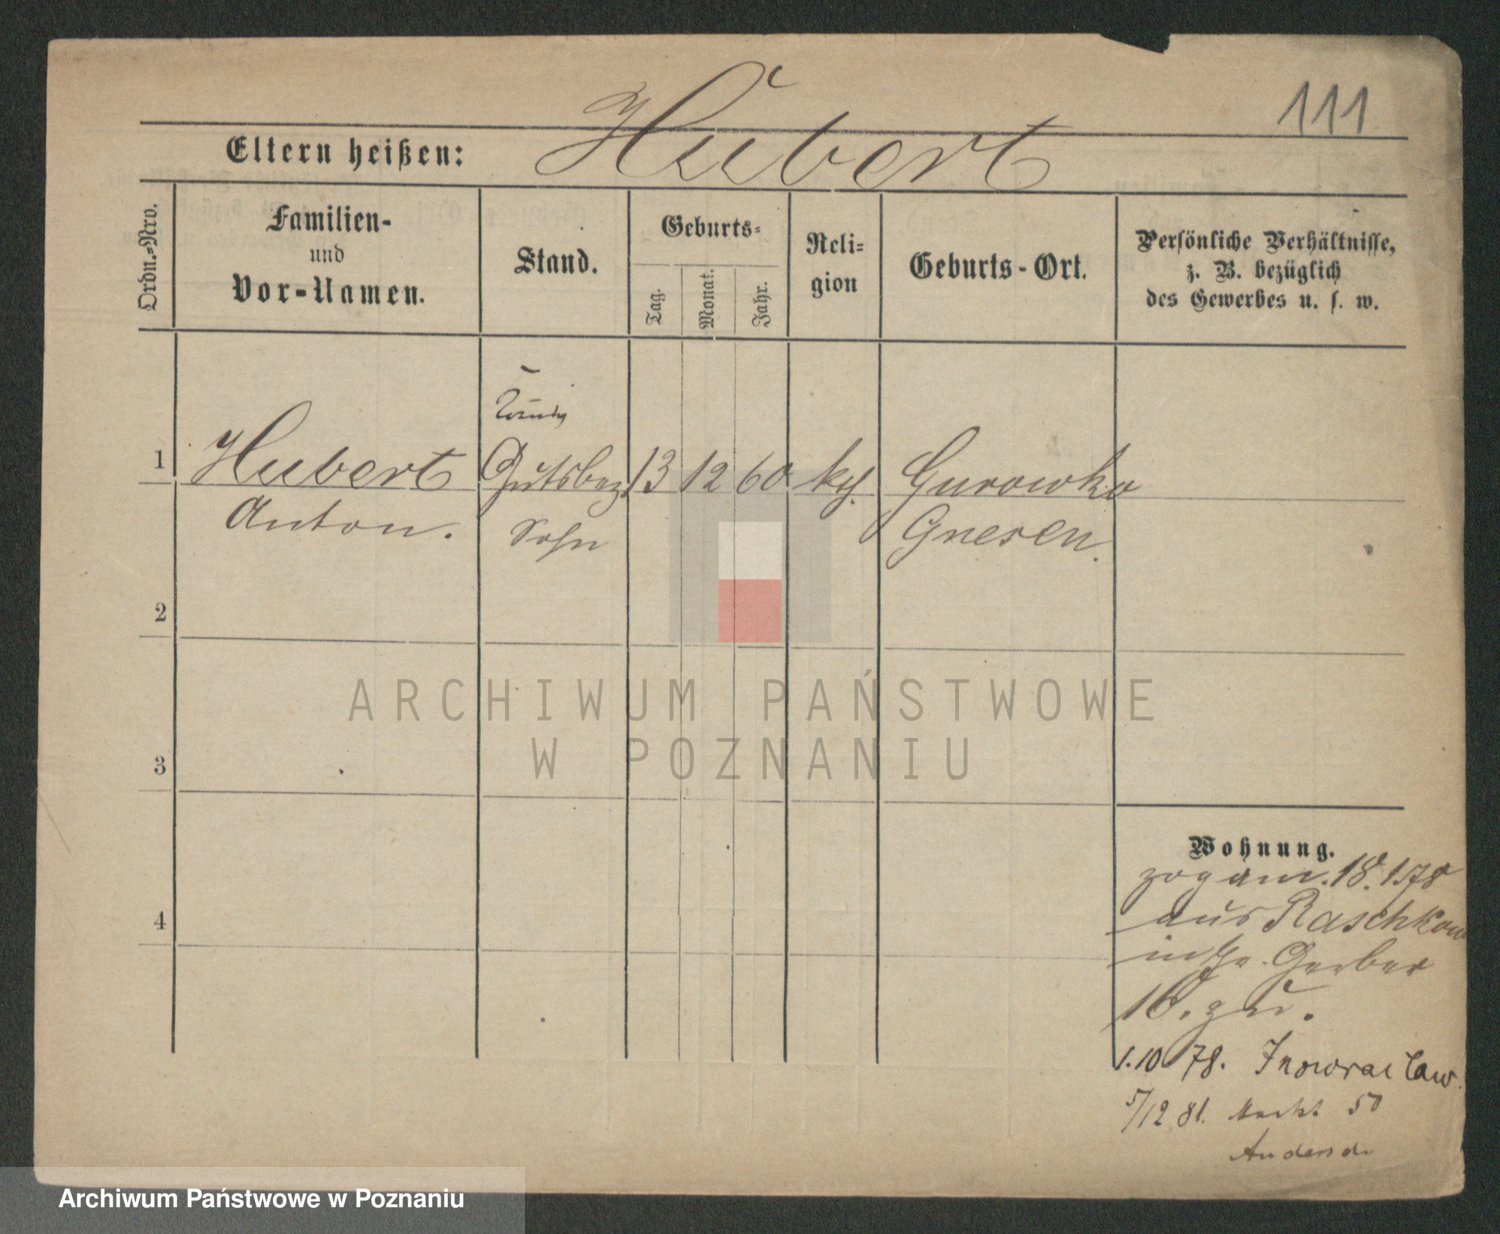 111
Eltern heißen: Hubert
Ordn.-Nro.
Familien-
und
Vor-Namen.
Stand.
Geburts-
Tag.
Monat.
Jahr.
Reli-
gion
Geburts-Ort.
Persönliche Verhältnisse,
z. B. bezüglich
des Gewerbes u. s. w.
1 Hubert Gutsbes 13 12 60 kth. Gurowko
Anton. Sohn Gnesen.
2
3
4
ARCHIWUM PAŃSTWOWE
W POZNANIU
Wohnung.
zog am 18.1.78
aus Raschkow
Gerber
16. zu.
1.10 78. Inowraclaw
5/12 81. Markt 50
Archiwum Państwowe w Poznaniu